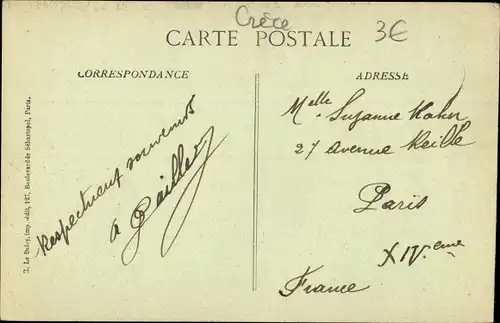 Crèce
3€
CARTE POSTALE
CORRESPONDANCE
ADRESSE
Respectueux souvenirs
à Pailler
Melle Suzanne Hahn
27 Avenue Reille
Paris
XIVeme
France
E. Le Deley, imp.-édit., 127, Boulevard de Sébastopol, Paris.